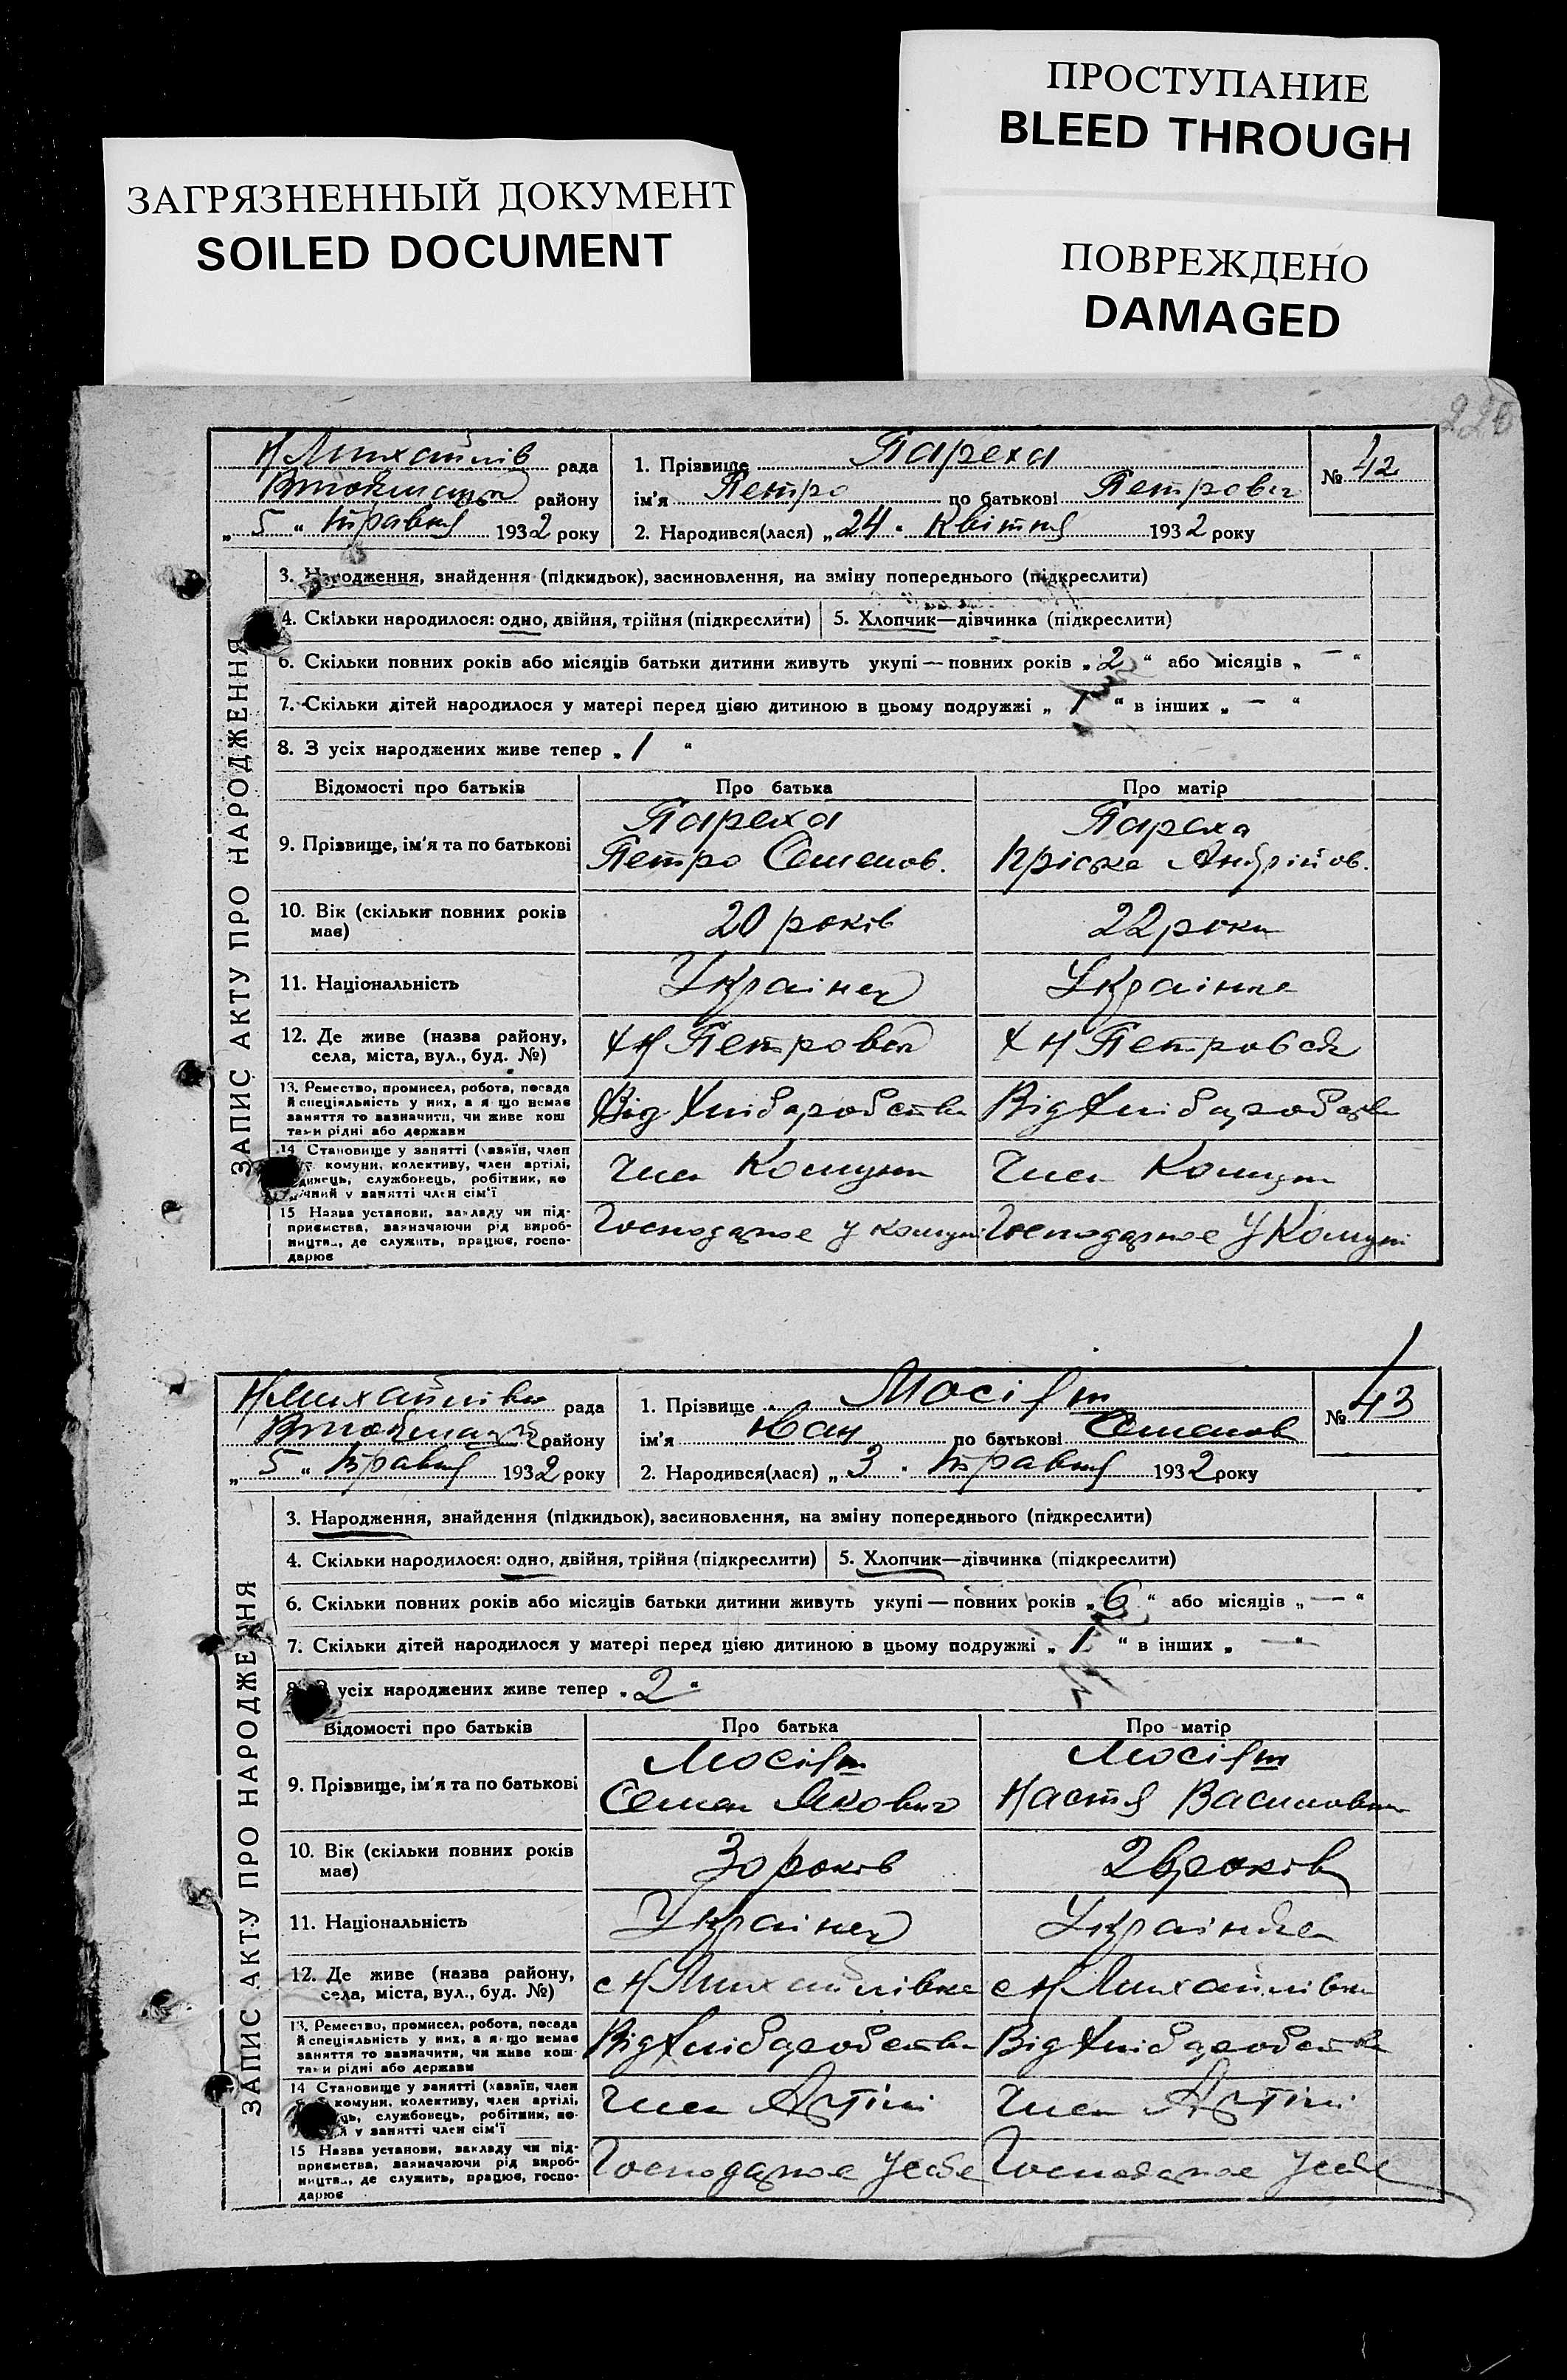 ПРОСТУПАНИЕ
BLEED THROUGH
ЗАГРЯЗНЕННЫЙ ДОКУМЕНТ
SOILED DOCUMENT
ПОВРЕЖДЕНО
DAMAGED
220
Н Михайлів рада
району
„ 5 “ травня 1932 року
1. Прізвище Пареха
ім'я Петро по батькові Петрович
2. Народився(лася) „ 24 “ Квітня 1932 року
№ 42
ЗАПИС АКТУ ПРО НАРОДЖЕННЯ
3. Народження, знайдення (підкидьок), засиновлення, на зміну попереднього (підкреслити)
4. Скільки народилося: одно, двійня, трійня (підкреслити) 5. Хлопчик—дівчинка (підкреслити)
6. Скільки повних років або місяців батьки дитини живуть укупі — повних років „ 2 “ або місяців „ — “
7. Скільки дітей народилося у матері перед цією дитиною в цьому подружжі „ 1 “ в інших „ — “
8. З усіх народжених живе тепер „ 1 “
Відомості про батьків Про батька Про матір
9. Прізвище, ім'я та по батькові
Пареха
Петро Семенов.
Пареха
Пріська Андрійов.
10. Вік (скільки повних років має)
20 років
22 роки
11. Національність
Українец
Українка
12. Де живе (назва району, села, міста, вул., буд. №)
х Н Петровськ
х Н Петровськ
13. Ремество, промисел, робота, посада
й спеціяльність у них, а якщо немає
заняття то зазначити, чи живе кош
тами рідні або держави
Від Хлібаробства
Від Хлібаробства
14 Становище у занятті (хазяїн, член
комуни, колективу, член артілі,
службовець, робітник,
у занятті член сім'ї
Член Комуни
Член Комуни
15 Назва установи, закладу чи під-
приємства, зазначаючи рід вироб-
ництва, де служить, працює, госпо-
дарює
Господарює у комуні
Господарює у Комуні
Н Михайлівка рада
району
„ 5 “ травня 1932 року
1. Прізвище
ім'я Іван по батькові Семенов
2. Народився(лася) „ 3 “ травня 1932 року
№ 43
ЗАПИС АКТУ ПРО НАРОДЖЕННЯ
3. Народження, знайдення (підкидьок), засиновлення, на зміну попереднього (підкреслити)
4. Скільки народилося: одно, двійня, трійня (підкреслити) 5. Хлопчик—дівчинка (підкреслити)
6. Скільки повних років або місяців батьки дитини живуть укупі — повних років „ 6 “ або місяців „ — “
7. Скільки дітей народилося у матері перед цією дитиною в цьому подружжі „ 1 “ в інших „ — “
усіх народжених живе тепер „ 2 “
Відомості про батьків Про батька Про матір
9. Прізвище, ім'я та по батькові
Семен Якович
Настя Василовна
10. Вік (скільки повних років має)
30 років
26 років
11. Національність
Українец
Українка
12. Де живе (назва району, села, міста, вул., буд. №)
с Н Михайлівка
с Н Михайлівка
13. Ремество, промисел, робота, посада
й спеціяльність у них, а якщо немає
заняття то зазначити, чи живе кош
тами рідні або держави
Від Хлібаробства
Від Хлібаробства
14 Становище у занятті (хазяїн, член
комуни, колективу, член артілі,
службовець, робітник,
у занятті член сім'ї
Член Артілі
Член Артілі
15 Назва установи, закладу чи під-
приємства, зазначаючи рід вироб-
ництва, де служить, працює, госпо-
дарює
Господарює у себе
Господарює у себе